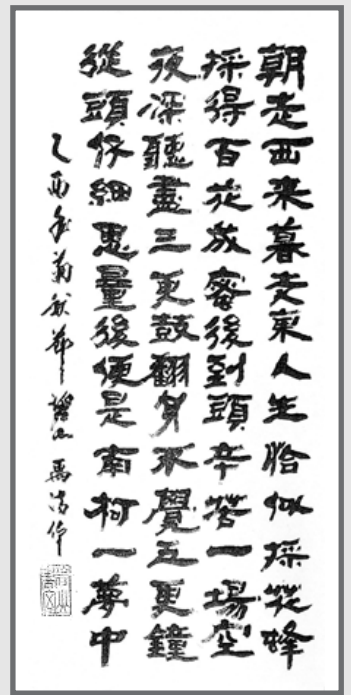 朝走西来暮走東人生恰似採花蜂
採得百花成蜜後到頭辛苦一場空
夜深聽盡三更鼓翻身不覺五更鐘
從頭仔細思量後便是南柯一夢中
乙酉年菊秋節碧山禹